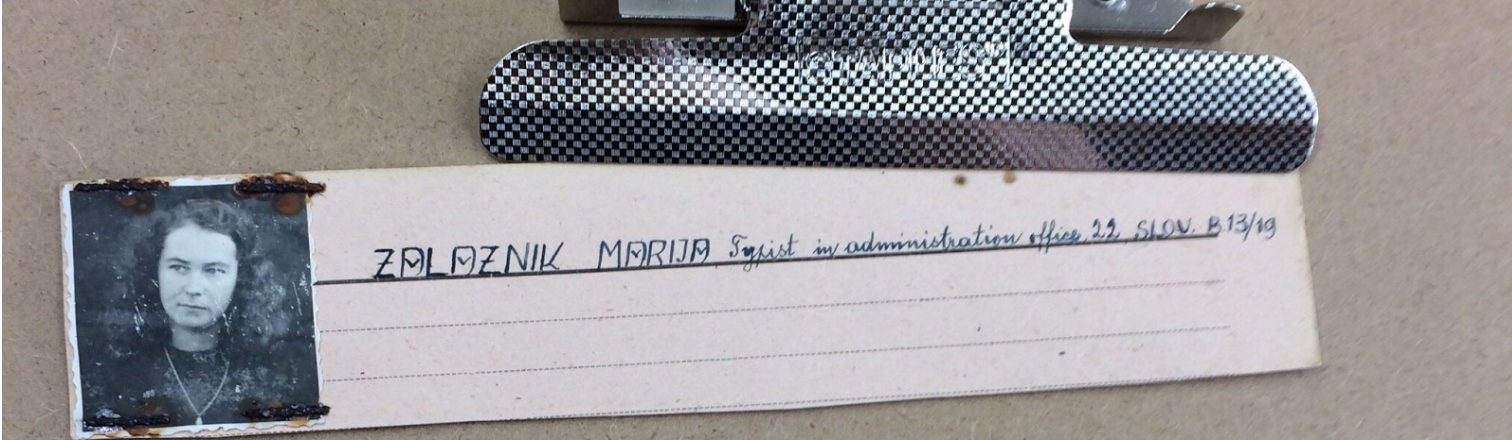 ZALAZNIK MARIJA Typist in administration office, 22, SLOV. B.13/19